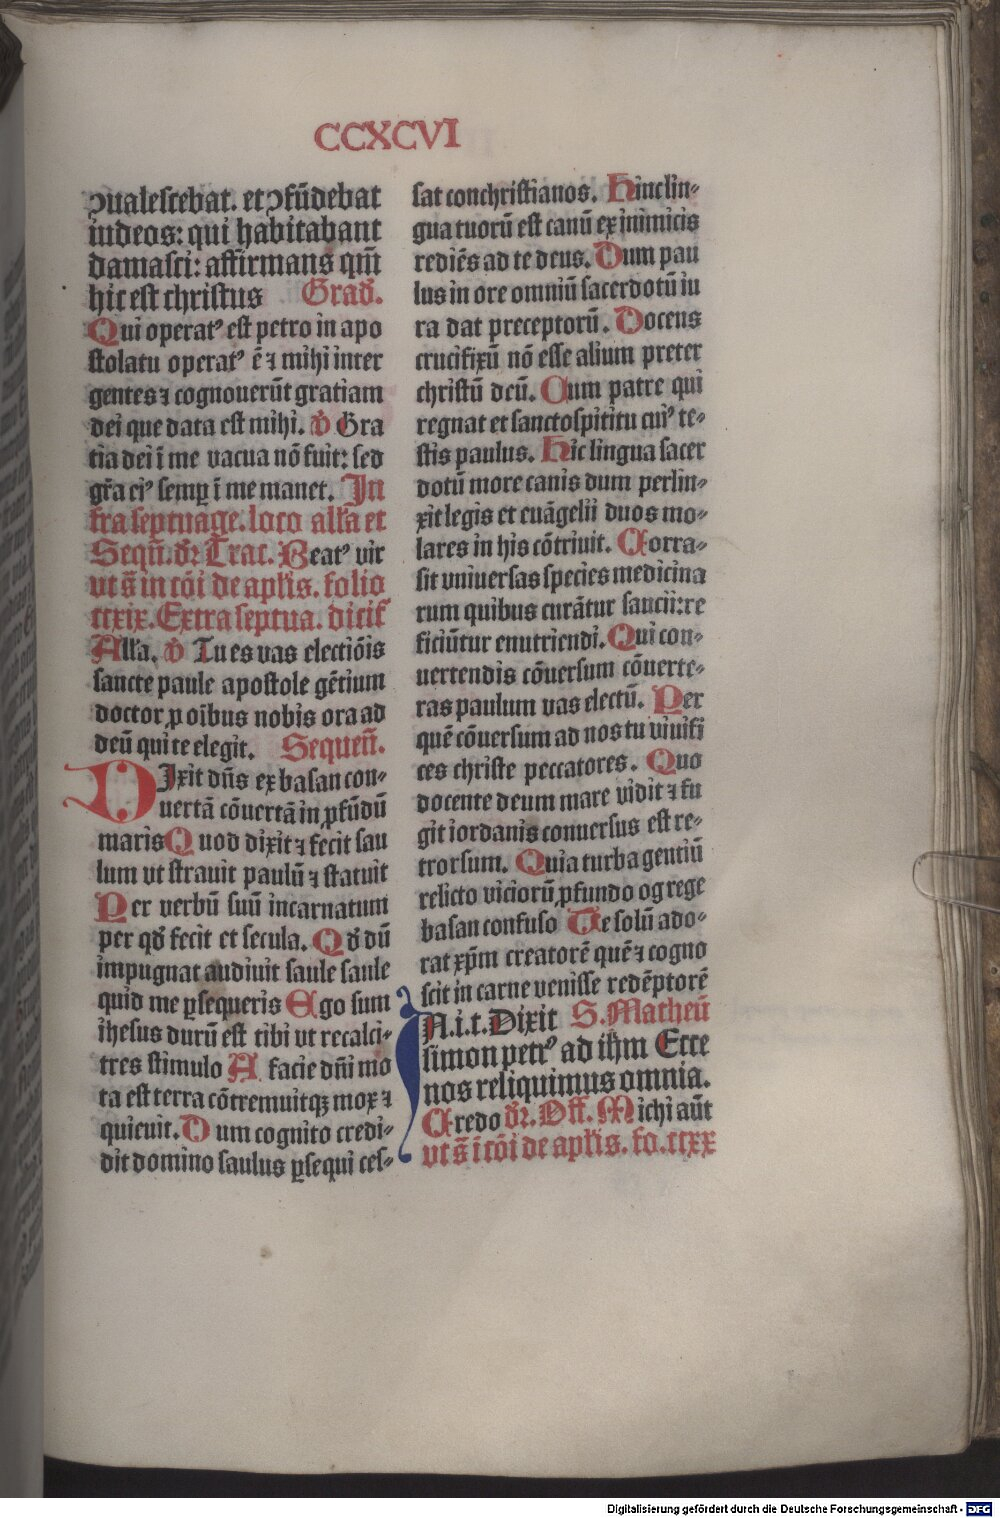 CCXCVI
ꝯualescebat. et ꝯfūdebat
iudeos: qui habitabant
damasci: affirmans qm̄
hic est christus Grad̄.
Qui operatꝰ est petro in apo
stolatu operatꝰ ē ⁊ mihi inter
gentes ⁊ cognouerūt gratiam
dei que data est mihi. ℣ Gra
tia dei ī me vacua nō fuit: sed
gr̄a eiꝰ semꝑ ī me manet. In
fra septuage. loco all̄a et
Sequn̄. dr̄ Trac. Beatꝰ vir
vt s̄ in cōi de apl̄is. folio
ccxix. Extra septua. dicit᷑
All̄a. ℣ Tu es vas electiōis
sancte paule apostole gētium
doctor ꝓ oībus nobis ora ad
deū qui te elegit. Sequen̄.
DIxit dn̄s ex basan con-
uertā cōuertā in ꝓfūdū
maris Quod dixit ⁊ fecit sau
lum vt strauit paulū ⁊ statuit
Per verbū suū incarnatum
per qd̄ fecit et secula. Qd̄ dū
impugnat audiuit saule saule
quid me ꝑsequeris Ego sum
ihesus durū est tibi vt recalci-
tres stimulo A facie dn̄i mo
ta est terra cōtremuitqꝫ mox ⁊
quieuit. Dum cognito credi-
dit domino saulus ꝑsequi ces-
sat conchristianos. Hinc lin-
gua tuorū est canū ex inimicis
rediēs ad te deus. Dum pau
lus in ore omniū sacerdotū iu
ra dat preceptorū. Docens
crucifixū nō esse alium preter
christū deū. Cum patre qui
regnat et sanctospititu cuiꝰ te-
stis paulus. Hic lingua sacer
dotū more canis dum perlin-
xit legis et euāgelii duos mo-
lares in his cōtriuit. Corra-
sit vniuersas species medicina
rum quibus curātur saucii: re
ficiūtur enutriendi. Qui con-
uertendis cōuersum cōuerte-
ras paulum vas electū. Per
quē cōuersum ad nos tu viuifi
ces christe peccatores. Quo
docente deum mare vidit ⁊ fu
git iordanis conuersus est re-
trorsum. Quia turba gentiū
relicto viciorū ꝓfundo og rege
basan confuso Te solū ado-
rat xp̄m creatorē quē ⁊ cogno
scit in carne venisse redēptorē
IN.i.t. Dixit S. Matheū
simon petrꝰ ad ih̄m Ecce
nos reliquimus omnia.
Credo dr̄. Off. Michi aūt
vt s̄ ī cōi de apl̄is. fo. ccxx
Digitalisierung gefördert durch die Deutsche Forschungsgemeinschaft - DFG